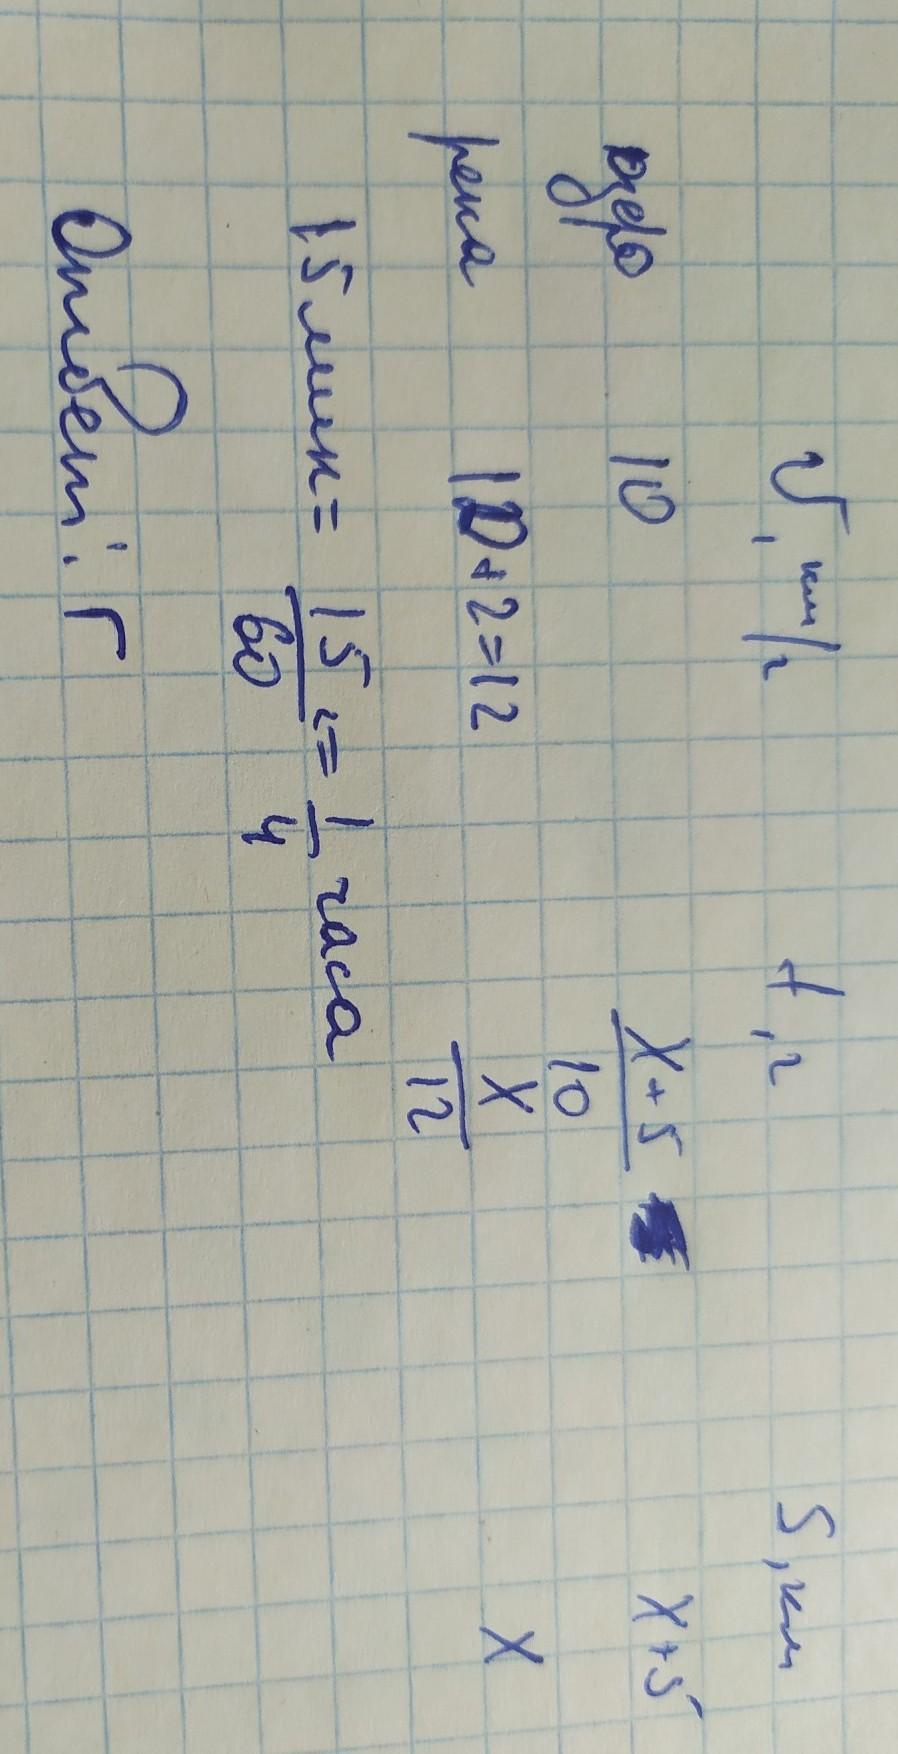 V, км/ч t, ч S, км
озеро 10 x+5/10 x+5
река 10+2=12 x/12 x
15 мин = 15/60 = 1/4 часа
Ответ: Г